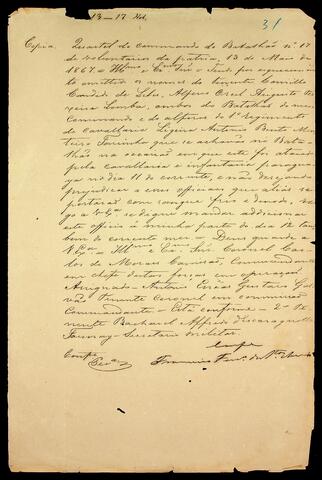 13-17 Vol.
31
Copia. Quartel do Commando do Batalhão nº 17
de voluntarios da patria, 13 de Maio de
1867. Illmo e Exmo Snr. Tendo por esquecimen
to omittido os nomes do Tenente Camillo
Candido de Lelis, Alferes Cecil Augusto
Lomba, ambos do Batalhão de meu
Commando e do alferes do 1º Regimento
de Cavallaria Ligeira Antonio Bento Mon
teiro Tourinho que se achavão no Bata
lhão na occasião em que este foi atacado
pela cavallaria e infantaria paraguay
a no dia 11 do corrente, e não desejando
prejudicar a esses officiaes que alias se
portarão com sangue frio e denodo, ro
go a V. Exª se digne mandar addicionar
este officio á minha parte do dia 12 tam
bem do corrente mez. Deus guarde a
V. Exª Illmo e Exmo Snr. Coronel Car
los de Moraes Camisão, Commandante
em chefe destas forças em operação
Assignado Antonio Enéas Gustavo Gal
vão Tenente Coronel em commissão
Commandante. Está conforme 2º Te
nente Bacharel Alfredo d'Escragnolle
Taunay Secretario militar.
Confe